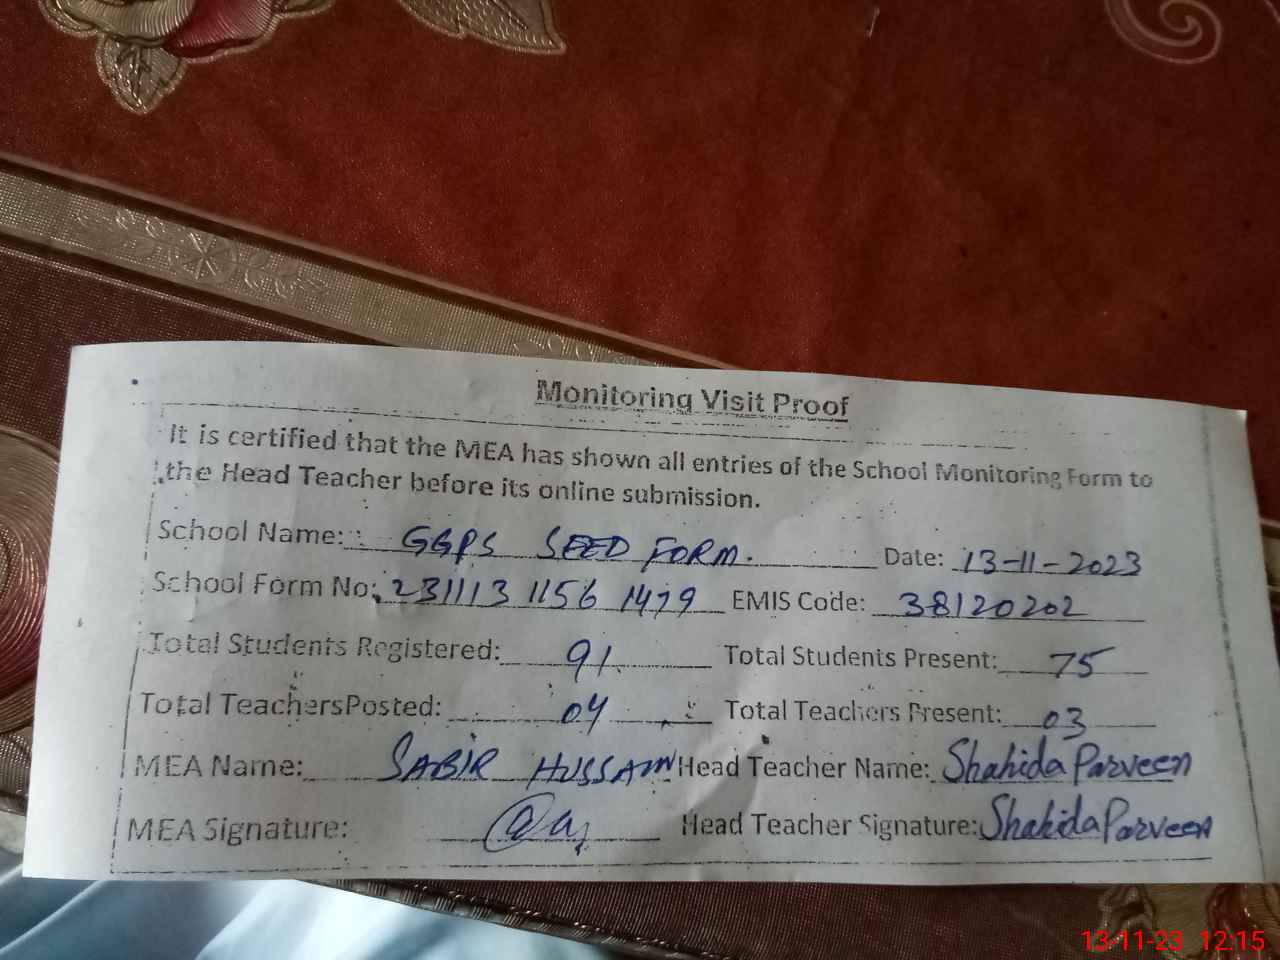 Monitoring Visit Proof
It is certified that the MEA has shown all entries of the School Monitoring Form to
the Head Teacher before its online submission.
School Name: GGPS SEED FORM. Date: 13-11-2023
School Form No: 231113 1156 1479 EMIS Code: 38120202
Total Students Registered: 91 Total Students Present: 75
Total TeachersPosted: 04 Total Teachers Present: 03
MEA Name: SABIR HUSSAIN Head Teacher Name: Shahida Parveen
MEA Signature: Head Teacher Signature: Shahida Parveen
13-11-23 12:15